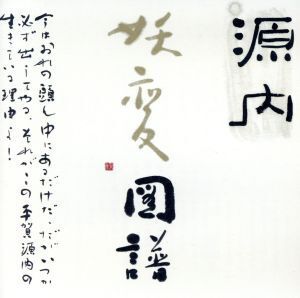 源内
妖変
図譜
今はおれの頭ん中にあるだけだ、だがいつか
必ず出してやる、それがこの平賀源内の
生きている理由よ!